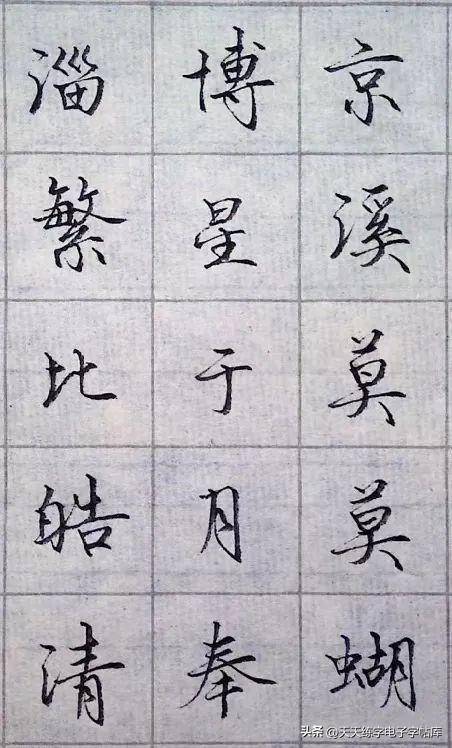 淄博京
繁星溪
比于莫
皓月莫
清奉蝴
头条 @天天练字电子字帖库